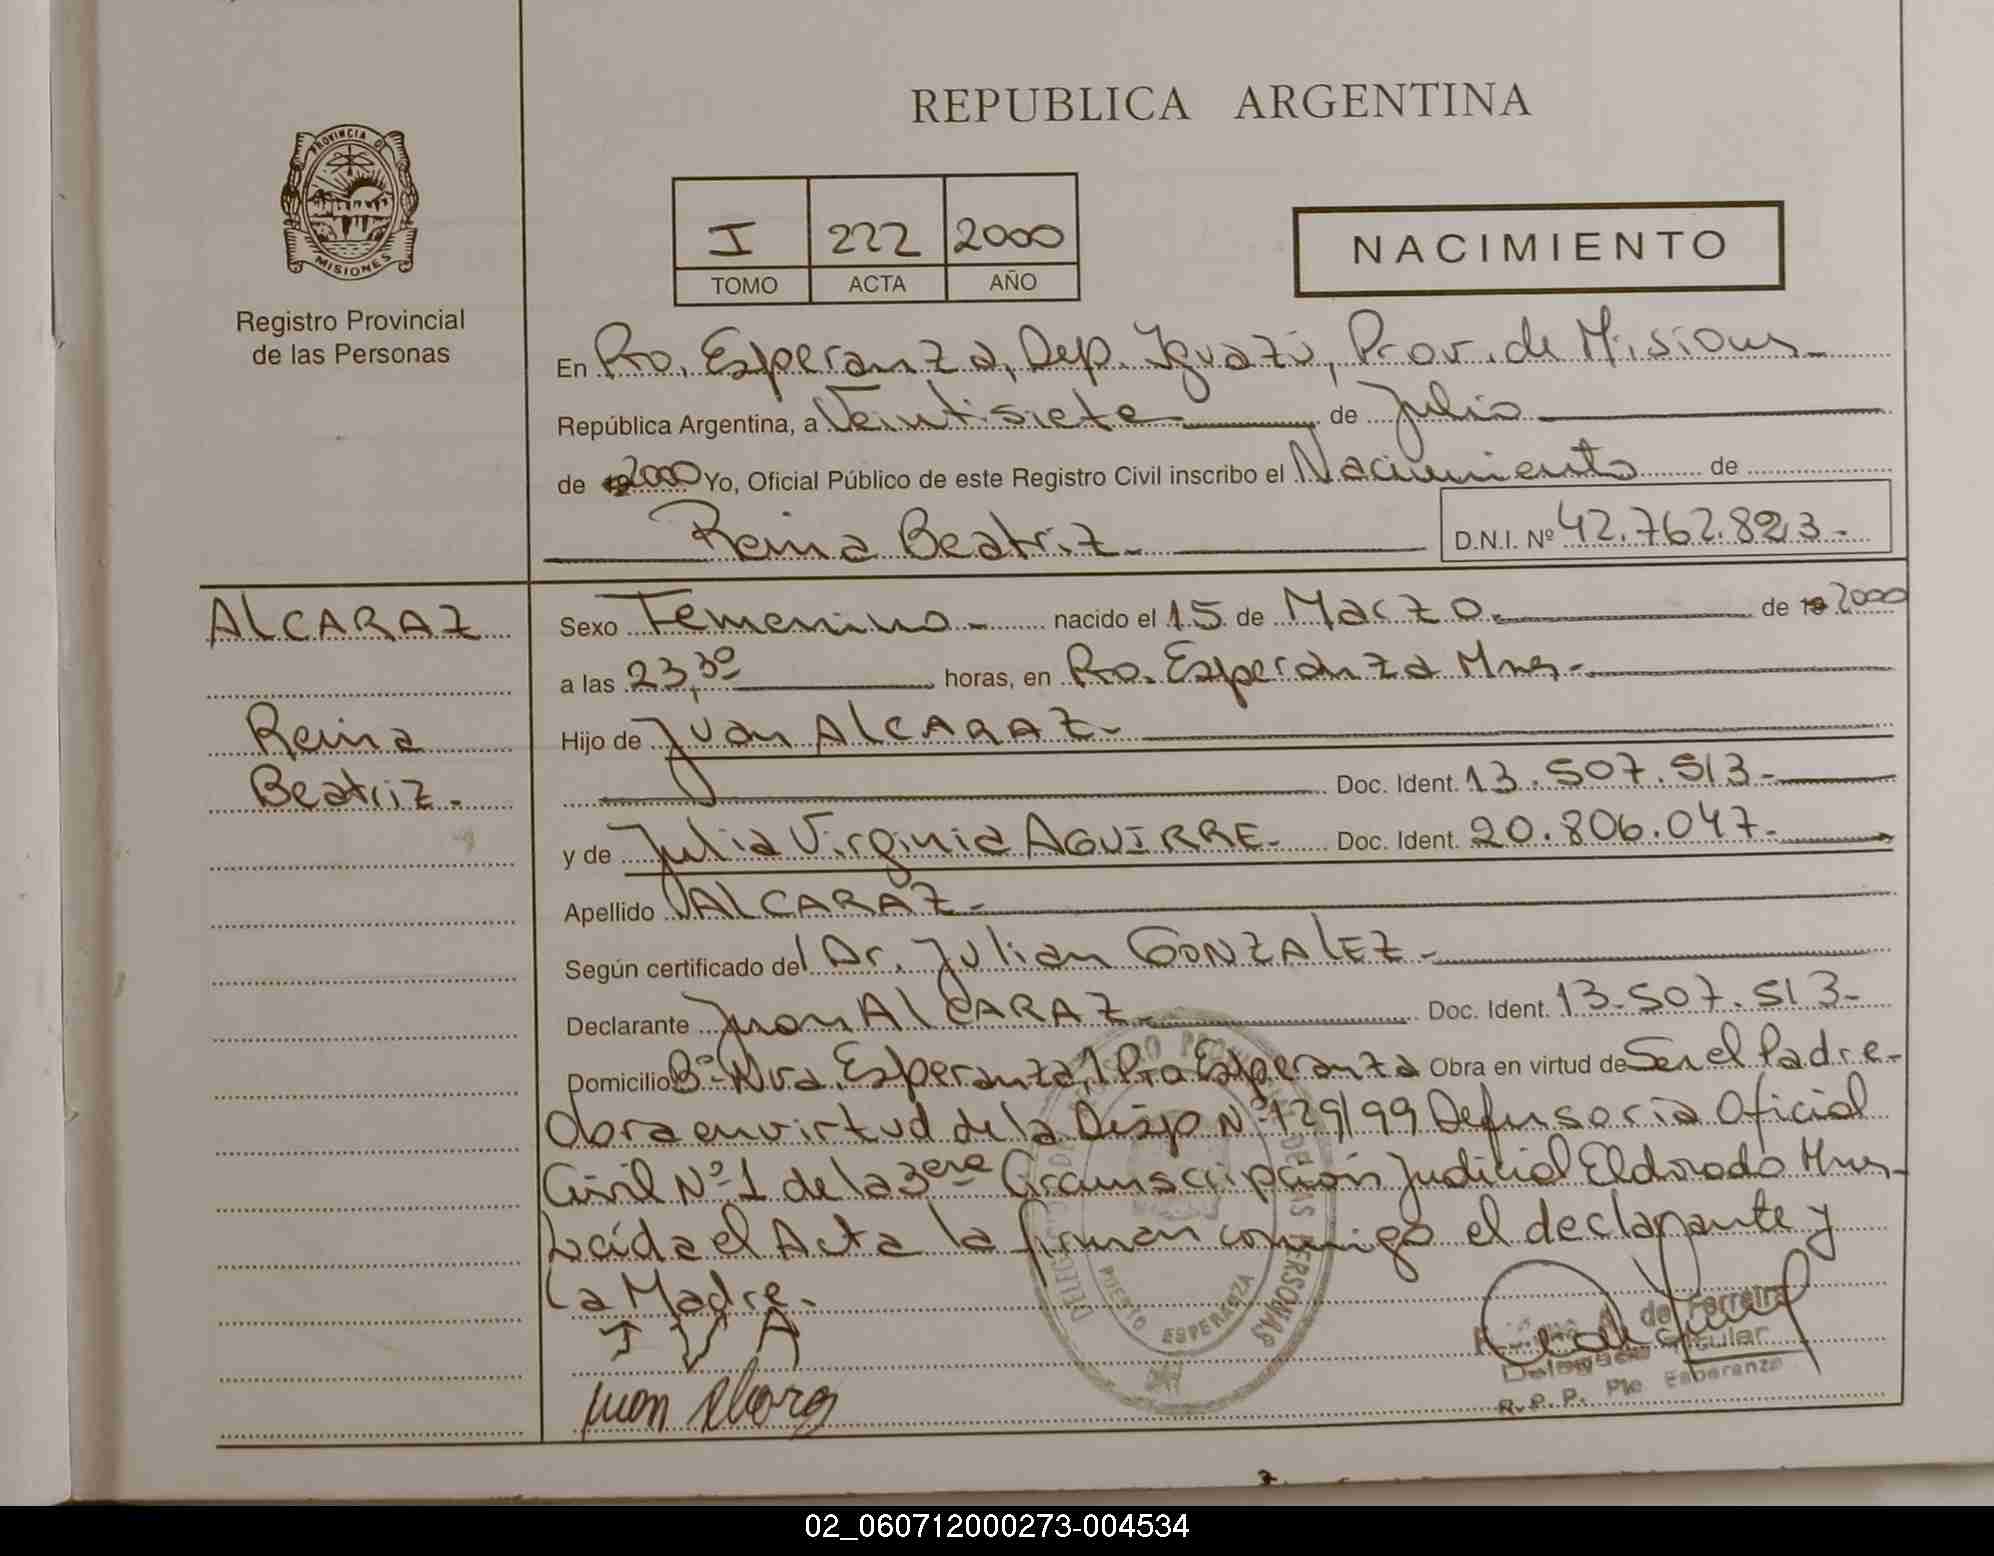 REPUBLICA ARGENTINA
PROVINCIA DE
MISIONES
Registro Provincial
de las Personas
I 222 2000
TOMO ACTA AÑO
NACIMIENTO
En Pto. Esperanza, Dep. Iguazú, Prov. de Misiones
República Argentina, a Veintisiete de Julio
de 2000 Yo, Oficial Público de este Registro Civil inscribo el Nacimiento de
Reina Beatriz D.N.I. Nº 42.762.823.-
ALCARAZ
Reina
Beatriz.-
Sexo Femenino.- nacido el 15 de Marzo. de 19 2000
a las 23,30 horas, en Pto. Esperanza Mnes.-
Hijo de Juan ALCARAZ.-
Doc. Ident. 13.507.513.-
y de Julia Virginia AGUIRRE.- Doc. Ident. 20.806.047.-
Apellido ALCARAZ.-
Según certificado del Dr. Julian GONZALEZ.-
Declarante Juan ALCARAZ.- Doc. Ident. 13.507.513-
Domicilio Bº Nva. Esperanza, Pto Esperanza Obra en virtud de Ser el Padre.-
Obra en virtud de la Disp Nº 129/99 Defensoria Oficial
Civil Nº 1 de la 3era Circunscripción Judicial Eldorado Mnes-
Leída el Acta la firman conmigo el declarante y
La Madre.-
J V A
Juan
DE LAS PERSONAS
PUERTO ESPERANZA
de Ferreira
Titular
R.P.P. Pto Esperanza
02_060712000273-004534